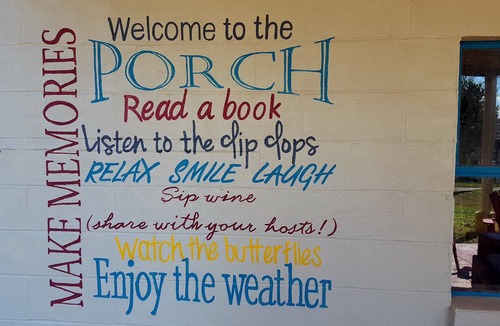 MAKE MEMORIES
Welcome to the
PORCH
Read a book
Listen to the clip clops
RELAX SMILE LAUGH
Sip wine
(share with your hosts!)
Watch the butterflies
Enjoy the weather